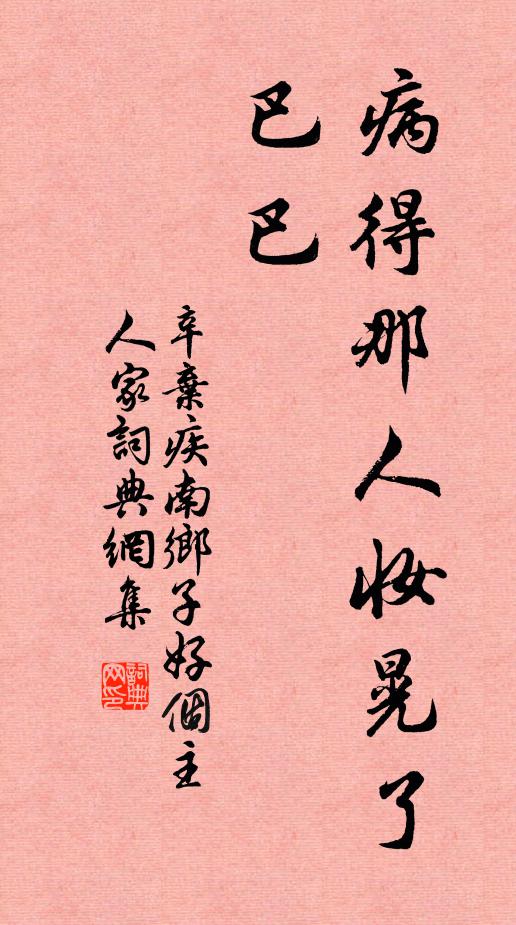 病得那人妝晃了
巴巴
辛棄疾南鄉子好個主
人家詞典網集
詞典網印